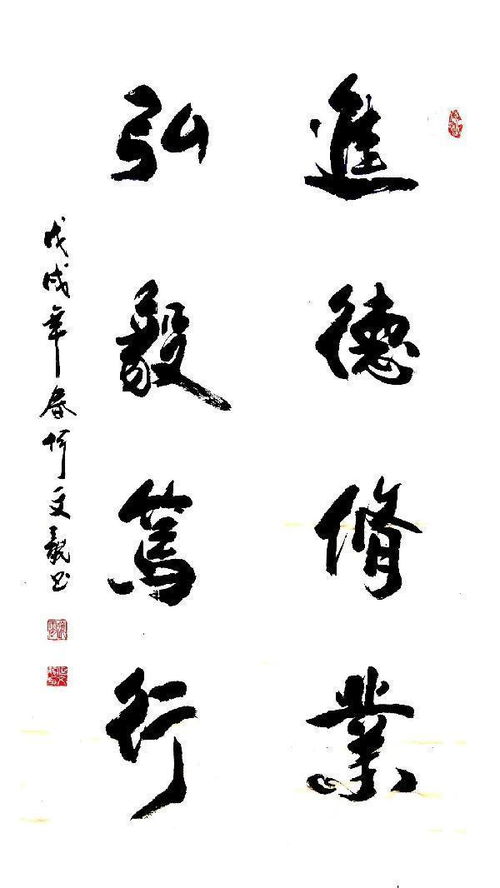 進德脩業
弘毅篤行
戊戌年春文书